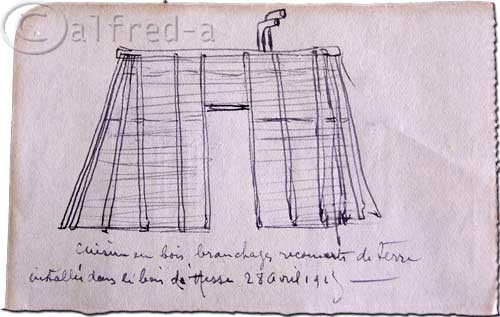 ©alfred-a
Cuisine en bois, branchages recouverts de terre
installés dans le bois de Hesse 28 avril 1915